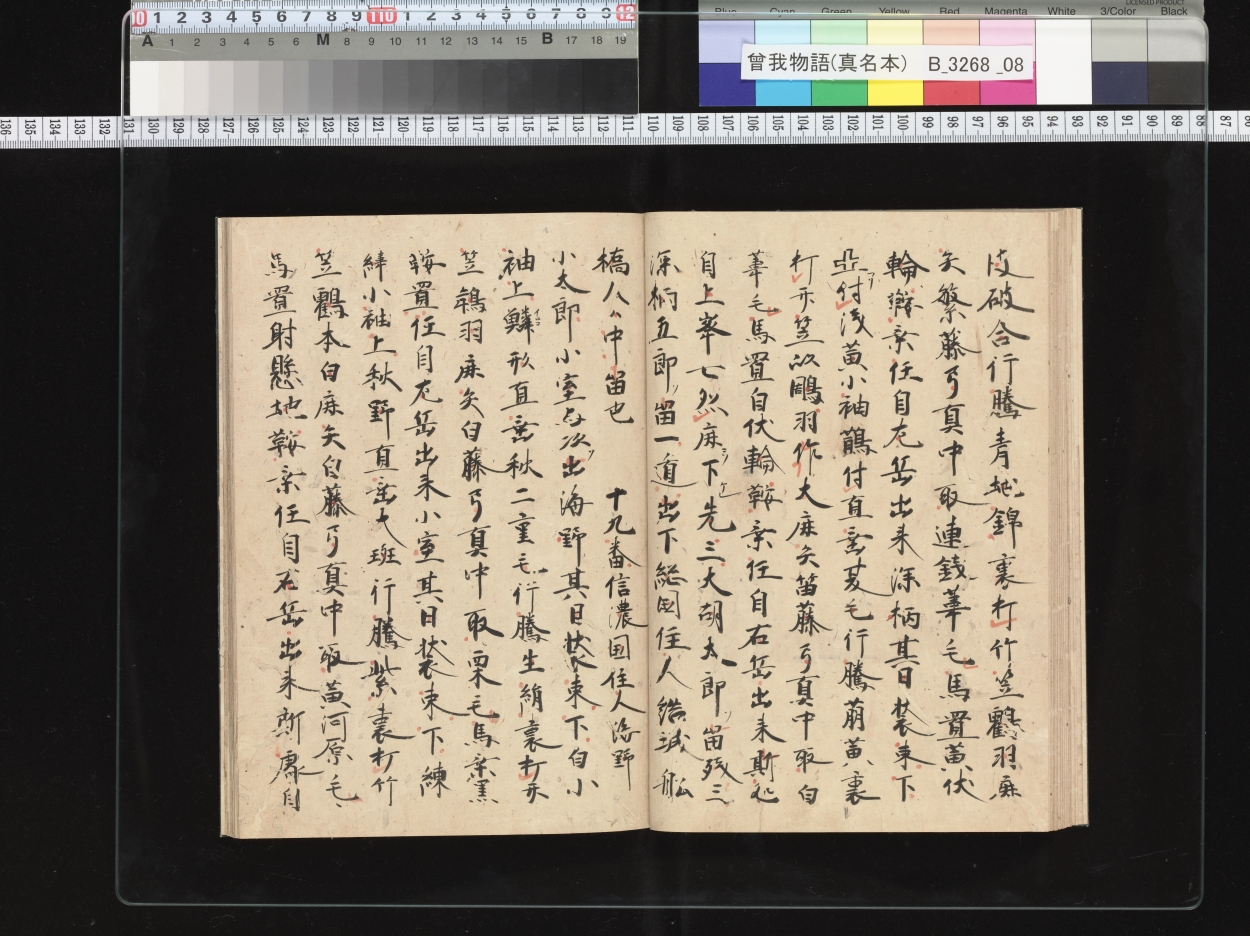 曾我物語(真名本) B_3268_08
破合行騰青地錦裏打竹笠鸛羽麻
矢繁藤弓真中取連銭葦毛馬置黄伏
輪鞍乗任自左岳出来深柄其日装束下
付浅黄小袖鵲付直垂夏毛行騰萌黄裏
打平笠以鵰羽作大麻矢笛藤弓真中取白
葦毛馬置白伏輪鞍乗任自右岳出来斯処
自上峯七然麻下先三大胡太郎留残三
深栖五郎留一道出下総国住人結城
橋人々中留也 十九番信濃国住人海野
小太郎小室与次出海野其日装束下白小
袖上鱗形直垂秋二重毛行騰生絹裏打平
笠鶉羽麻矢白藤弓真中取栗毛馬乗黒
鞍置任自左岳出来小室其日装束下練
絳小袖上秋野直垂大斑行騰紫裏打竹
笠鸛本白麻矢白藤弓真中取黄河原毛
馬置射懸地鞍乗任自右岳出来所